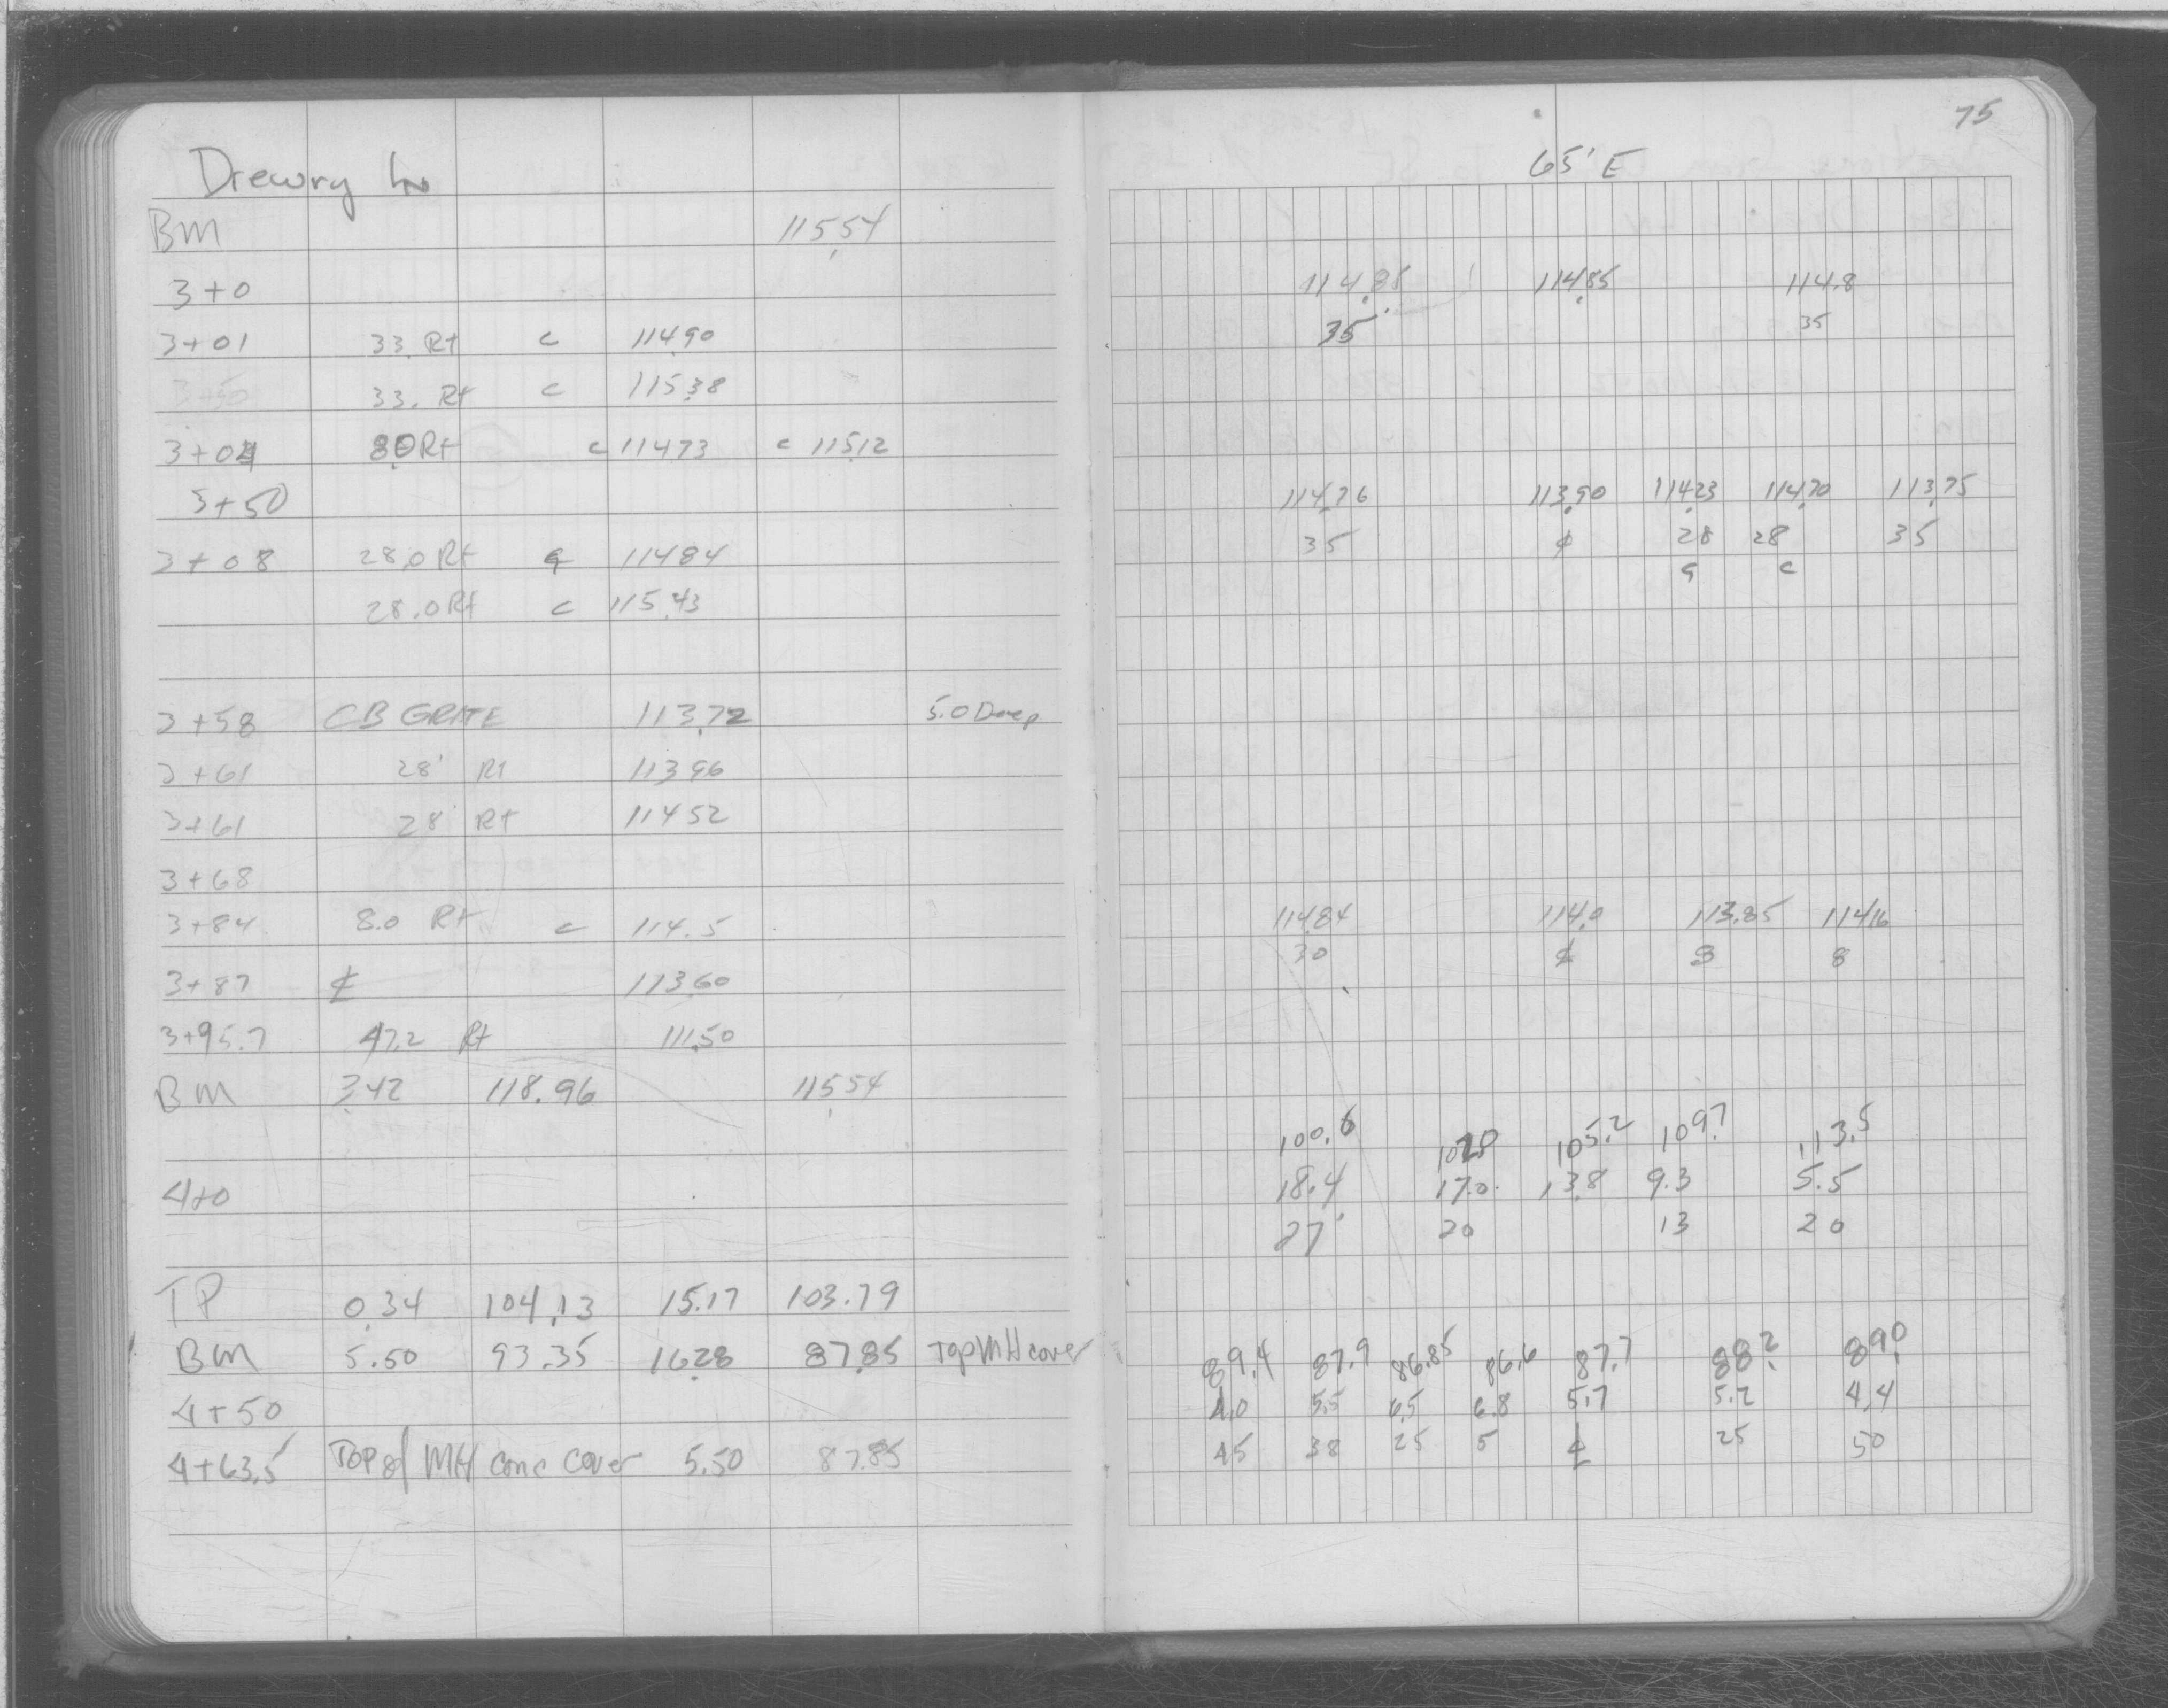 Drewry Ln
BM 115.54
3+0
3+01 33. Rt c 114.90
3+50 33. Rt c 115.38
3+04 8.0 Rt c 114.73 c 115.12
3+50
3+08 28.0 Rt g 114.84
28.0 Rt c 115.43
3+58 CB GRATE 113.72 5.0 Deep
3+61 28' Rt 113.96
3+61 28 Rt 114.52
3+68
3+84 8.0 Rt c 114.5
3+87 ℄ 113.60
3+95.7 47.2 Rt 111.50
BM 3.42 118.96 115.54
4+0
TP 0.34 104.13 15.17 103.79
BM 5.50 93.35 16.28 87.85 Top MH cover
4+50
4+63.5 Top of MH conc cover 5.50 87.85
75
65' E
114.85 114.85 114.8
35 35
114.76 113.90 114.23 114.70 113.75
35 ℄ 28 28 35
g c
114.84 114.0 113.85 114.16
30 ℄ 8 8
100.6 102.0 105.2 109.7 113.5
18.4 17.0 13.8 9.3 5.5
27 20 13 20
89.4 87.9 86.85 86.6 87.7 88.2 89.0
4.0 5.5 6.5 6.8 5.7 5.2 4.4
45 38 25 5 ℄ 25 50